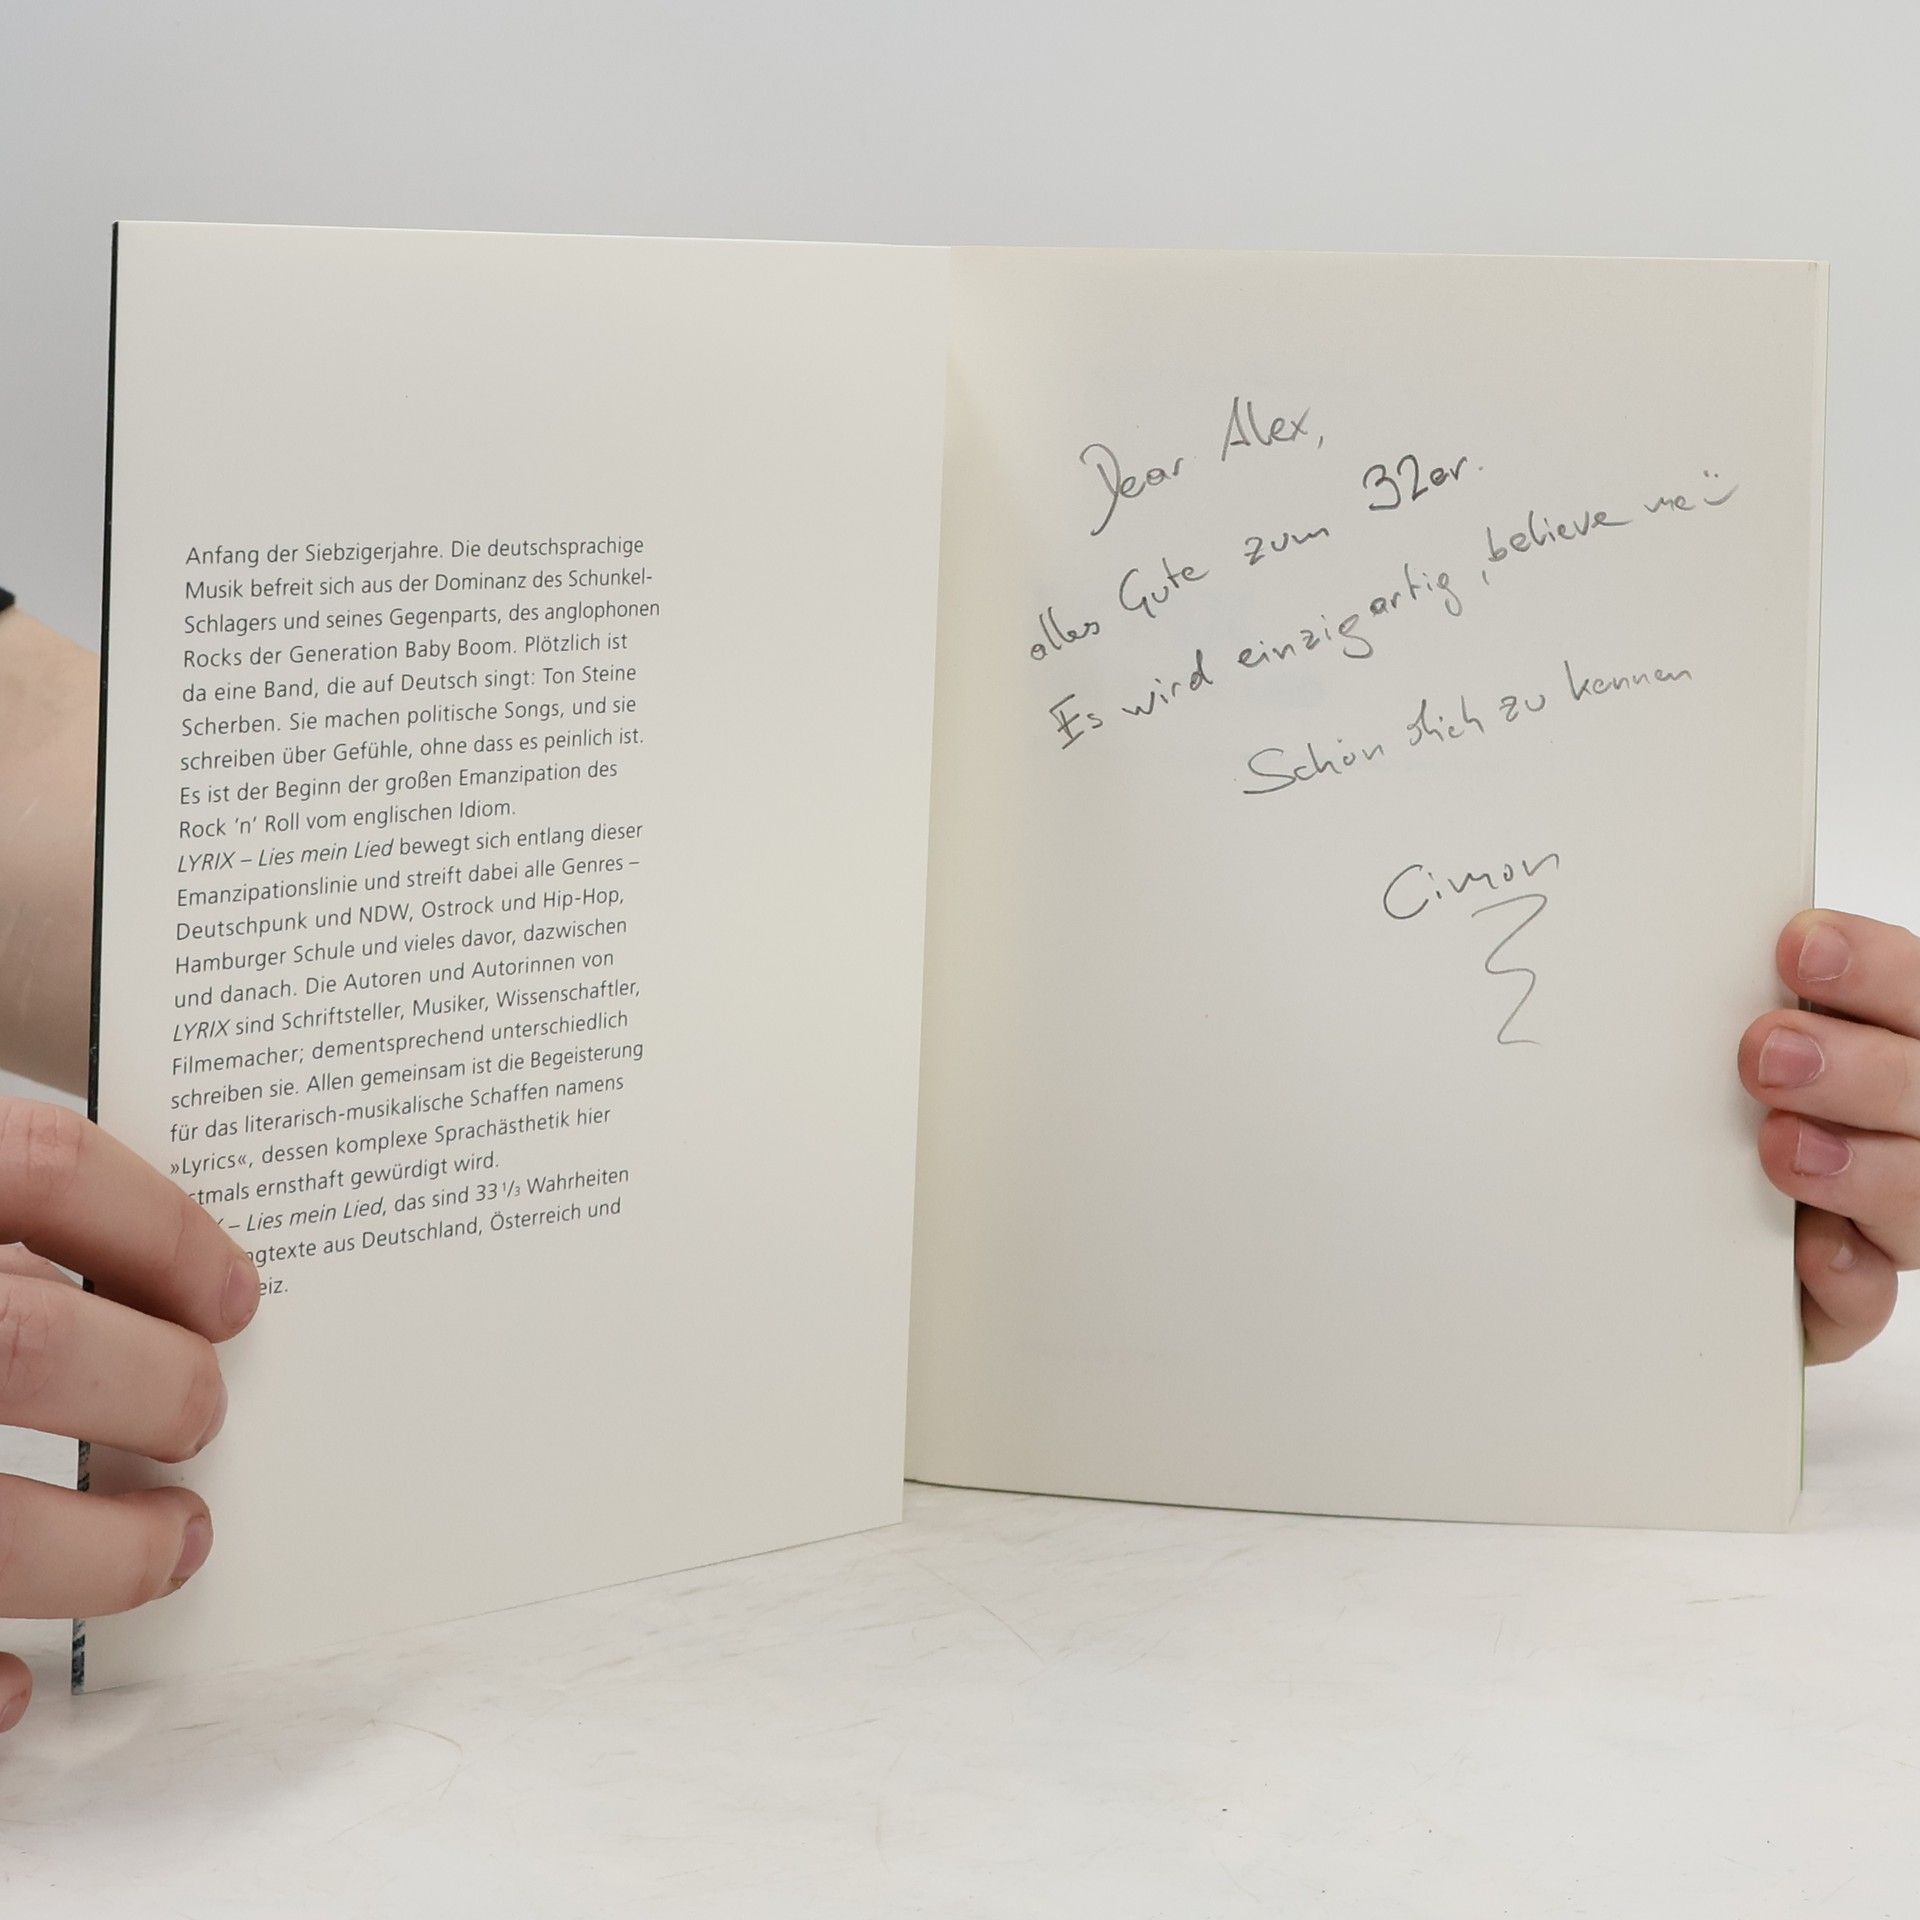 Anfang der Siebzigerjahre. Die deutschsprachige
Musik befreit sich aus der Dominanz des Schunkel-
Schlagers und seines Gegenparts, des anglophonen
Rocks der Generation Baby Boom. Plötzlich ist
da eine Band, die auf Deutsch singt: Ton Steine
Scherben. Sie machen politische Songs, und sie
schreiben über Gefühle, ohne dass es peinlich ist.
Es ist der Beginn der großen Emanzipation des
Rock ’n’ Roll vom englischen Idiom.
LYRIX – Lies mein Lied bewegt sich entlang dieser
Emanzipationslinie und streift dabei alle Genres –
Deutschpunk und NDW, Ostrock und Hip-Hop,
Hamburger Schule und vieles davor, dazwischen
und danach. Die Autoren und Autorinnen von
LYRIX sind Schriftsteller, Musiker, Wissenschaftler,
Filmemacher; dementsprechend unterschiedlich
schreiben sie. Allen gemeinsam ist die Begeisterung
für das literarisch-musikalische Schaffen namens
»Lyrics«, dessen komplexe Sprachästhetik hier
ernsthaft gewürdigt wird.
– Lies mein Lied, das sind 33 1/3 Wahrheiten
aus Deutschland, Österreich und
Dear Alex,
alles Gute zum 32er.
Es wird einzigartig, believe me ü
Schön dich zu kennen
Cimon